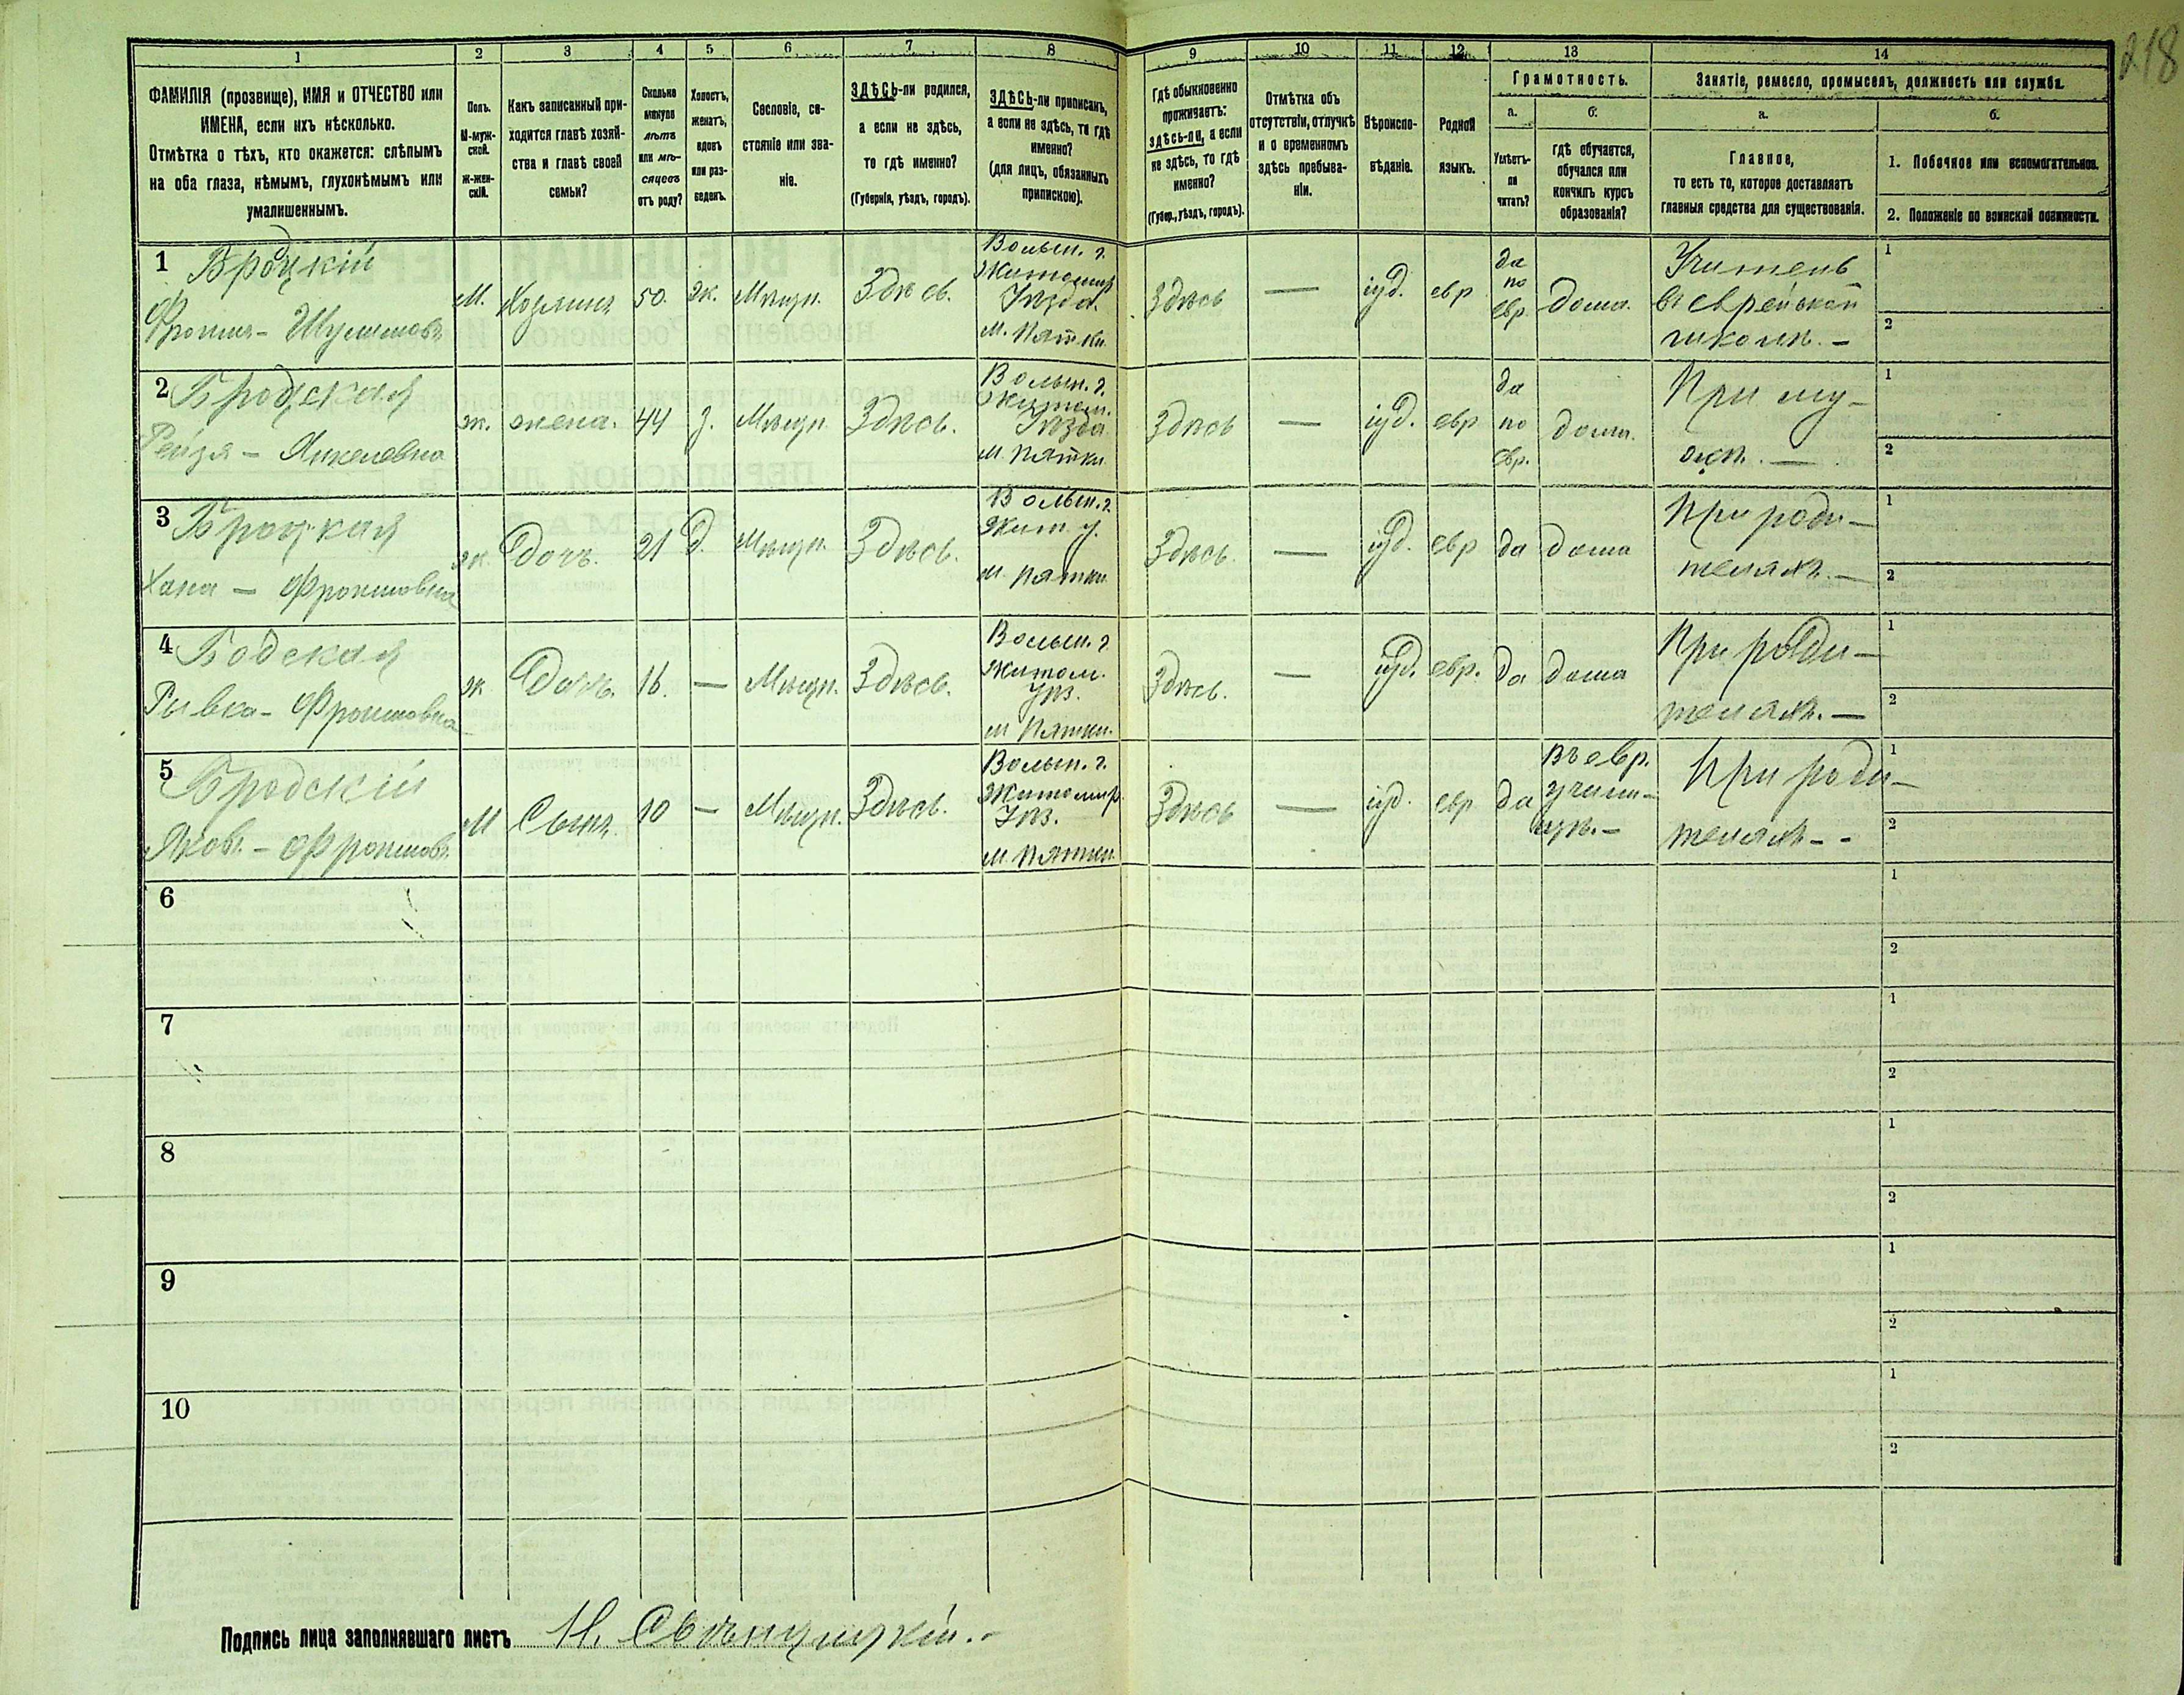 218
1 2 3 4 5 6 7 8 9 10 11 12 13 14
ФАМИЛІЯ (прозвище), ИМЯ и ОТЧЕСТВО или
ИМЕНА, если ихъ нѣсколько.
Отмѣтка о тѣхъ, кто окажется: слѣпымъ
на оба глаза, нѣмымъ, глухонѣмымъ или
умалишеннымъ.
Полъ.
М-муж-
ской.
Ж-жен-
скій.
Какъ записанный при-
ходится главѣ хозяй-
ства и главѣ своей
семьи?
Сколько
минуло
лѣтъ
или мѣ-
сяцевъ
отъ роду?
Холостъ,
женатъ,
вдовъ
или раз-
веденъ.
Сословіе, со-
стояніе или зва-
ніе.
ЗДѢСЬ-ли родился,
а если не здѣсь,
то гдѣ именно?
(Губернія, уѣздъ, городъ).
ЗДѢСЬ-ли приписанъ,
а если не здѣсь, то гдѣ
именно?
(для лицъ, обязанныхъ
припискою).
Гдѣ обыкновенно
проживаетъ:
здѣсь-ли, а если
не здѣсь, то гдѣ
именно?
(Губер., уѣздъ, городъ).
Отмѣтка объ
отсутствіи, отлучкѣ
и о временномъ
здѣсь пребыва-
ніи.
Вѣроиспо-
вѣданіе.
Родной
языкъ.
Грамотность.
а.
Умѣетъ-
ли
читать?
б.
гдѣ обучается,
обучался или
кончилъ курсъ
образованія?
Занятіе, ремесло, промыселъ, должность или служба.
а.
Главное,
то есть то, которое доставляетъ
главныя средства для существованія.
б.
1. Побочное или вспомогательное.
2. Положеніе по воинской повинности.
1 Броцкій
Фроимъ - Шулимовъ
М.
Хозяинъ
50.
ж.
Мѣщн.
Здѣсь.
Волын. г.
Житомир.
Уѣзда.
м. Пятки
Здѣсь
—
іуд.
евр
да
по
евр.
дома.
Учитель
въ еврейской
школѣ. -
1
2
2 Бродская
Рейзя - Янкелевна
ж.
жена.
44
з.
Мѣщн.
Здѣсь.
Волын. г.
Житом.
Уѣзда
м. Пятки
Здѣсь
—
іуд.
евр
да
по
евр.
дома.
При му-
жѣ. —
1
2
3 Броцкая
Хана - Фроимовна
ж.
Дочь.
21
д.
Мѣщн.
Здѣсь.
Волын. г.
Жит. у.
м. Пятки
Здѣсь.
—
іуд.
евр
да
дома
При роди-
теляхъ. —
1
2
4 Бодская
Рывка - Фроимовна
ж
Дочь.
16.
—
Мѣщн.
Здѣсь.
Волын. г.
Житом.
Уѣз.
м. Пятки.
Здѣсь.
—
іуд.
евр.
да
дома
При роди-
теляхъ. —
1
2
5 Бродскій
Яковъ. - Фроимов.
М
Сынъ.
10
—
Мѣщн.
Здѣсь.
Волын. г.
Житомир.
Уѣз.
м. Пятки.
Здѣсь
—
іуд.
евр
да
Въ евр.
учили-
щѣ. -
При роди-
теляхъ - -
1
2
6
1
2
7
1
2
8
1
2
9
1
2
10
1
2
Подпись лица заполнявшаго листъ